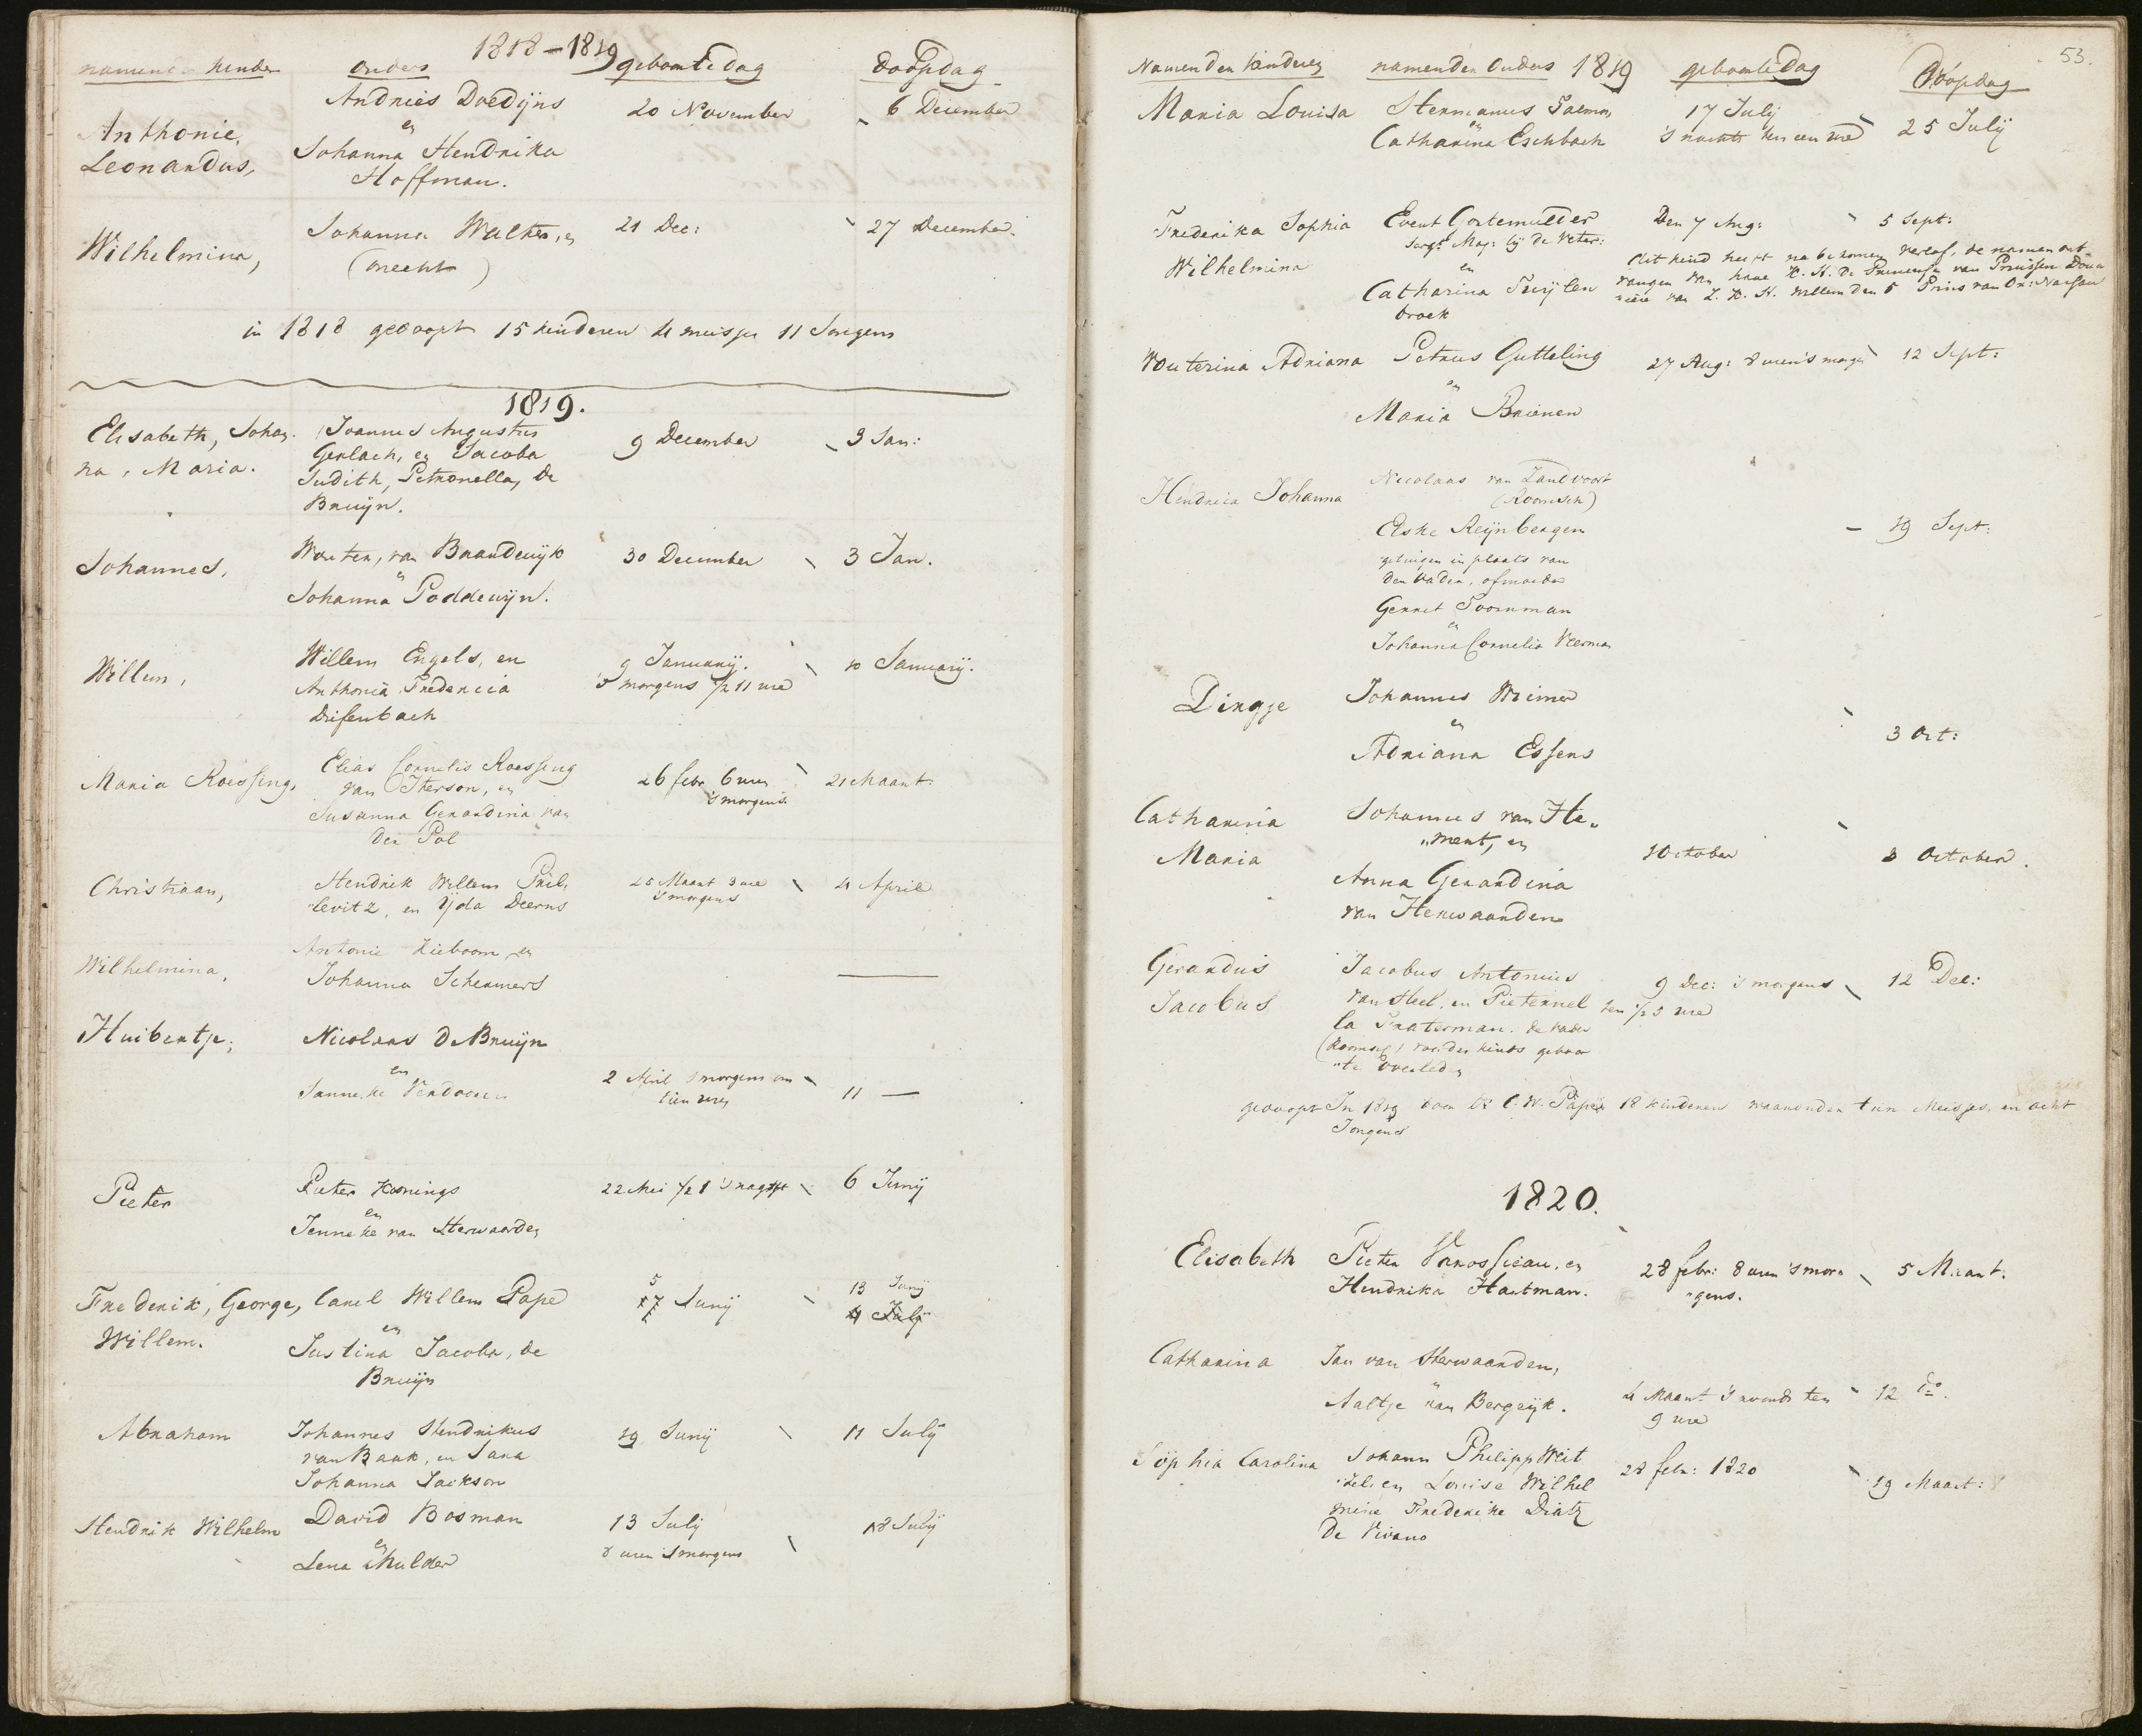 1818-1819
namen kinder ouders geboortedag doopdag
Anthonie, Andries Doedijns 20 November 6 December
en
Leonardus, Johanna Hendrika
Hoffman.
Wilhelmina, Johanna Walther, en 21 Dec: 27 December.
(onecht)
in 1818 gedoopt 15 kinderen 4 meisjes 11 Jongens
1819.
Elisabeth, Johan- Joannes Augustus 9 December 3 Jan:
na, Maria. Gerlach, en Jacoba
Judith, Petronella, de
Bruijn.
Johannes, Wouter, van Baardwijk 30 December 3 Jan.
en
Johanna Poddewijn.
Willem, Willem Engels, en 9 Januarij. 10 Januarij.
Anthonia Fredericia 's morgens 1/2 11 ure
Diefenbach
Maria Roessing, Elias Cornelis Roessing 26 febr 6 uren 21 Maart.
van Iterson, en 's morgens
Susanna Gerardina van
der Pol
Christiaan, Hendrik Willem Pril- 25 Maart 3 ure 4 April
levitz, en Yda Deerns 's morgens
Wilhelmina, Antonie Kieboom, en
Johanna Schermers
Huibertje, Nicolaas de Bruijn
en
Janneke Verdoorn 2 April 's morgens om 11 —
tien uren
Pieter Pieter Konings 22 Mei 1/2 1 's nagts 6 Junij
en
Jenneke van Herwaarden
Frederik, George, Carel Willem Pape 5 Junij 13 Junij
Willem. en 17 4 July
Justina Jacoba, de
Bruijn
Abraham Johannes Hendrikus 19 Junij 11 Julij
van Baak, en Sara
Johanna Jackson
Hendrik Wilhelm David Bosman 13 Julij 18 Julij
en 8 uren 's morgens
Lena Mulder
53.
Namen den kinderen namen den Ouders 1819 geboortedag Doopdag
Maria Louisa Hermanus Salmon 17 Julij 25 Julij
en
Catharina Eschbach 's nachts ten een ure
Frederika Sophia Evert Gortemulder Den 7 Aug: 5 Sept:
Wilhelmina Sergt. Maj: bij de Veter:
en
Catharina Tuijlen
broek
Dit kind heeft na bekomen verlof, de namen ont
vangen van hare K. H. de Princesse van Pruissen Doua
riere van Z. D. H. Willem den 5 Prins van Or: Nassau
Wouterina Adriana Petrus Gutteling 27 Aug: 8 uren 's morgens 12 Sept:
en
Maria Brienen
Hendrica Johanna Nicolaas van Zandvoort
(Roomsch)
Elske Reijnbergen 19 Sept:
getuigen in plaats van
den vader, of moeder
Gerret Toornman
en
Johanna Cornelia Veerman
Dingje Johannes Weimer
en 3 Oct:
Adriana Essens
Catharina Johannes van He-
Maria "ment, en 1 October 3 October.
Anna Gerardina
van Herwaarden
Gerardus Jacobus Antonius 9 Dec: 's morgens 12 Dec:
Jacobus van Heel, en Pieternel ten 1/2 5 ure
la Fraterman. de vader
(Roomsch) voor des kinds geboor
"te overleden
gedoopt In 1819 door Ds C. W. Pape 18 kinderen waaronder tien Meisjes, en acht
Jongens
1820.
Elisabeth Pieter Vrossieau, en 28 febr: 8 uren 's mor- 5 Maart.
Hendrika Hartman. "gens.
Catharina Jan van Herwaarden,
en
Aaltje van Bergeijk. 4 Maart 's avonds ten 12 do.
9 ure
Sophia Carolina Johann Philipp Weit 28 febr: 1820 19 Maart:
"zel, en Louise Wilhel
mine Frederike Diatz
De Vivano